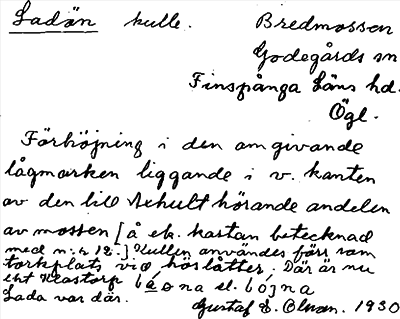 Ladön kulle. Bredmossen
Godegårds sn
Finspånga Läns hd.
Ögl.
Förhöjning i den omgivande
lågmarken liggande i v. kanten
av den till hörande andelen
av mossen [å ek. kartan betecknad
med n:r 12.] Kullen användes förr som
torkplats vid höslåtter. Där är nu
Lada var där. Gustaf E. Olsson. 1930